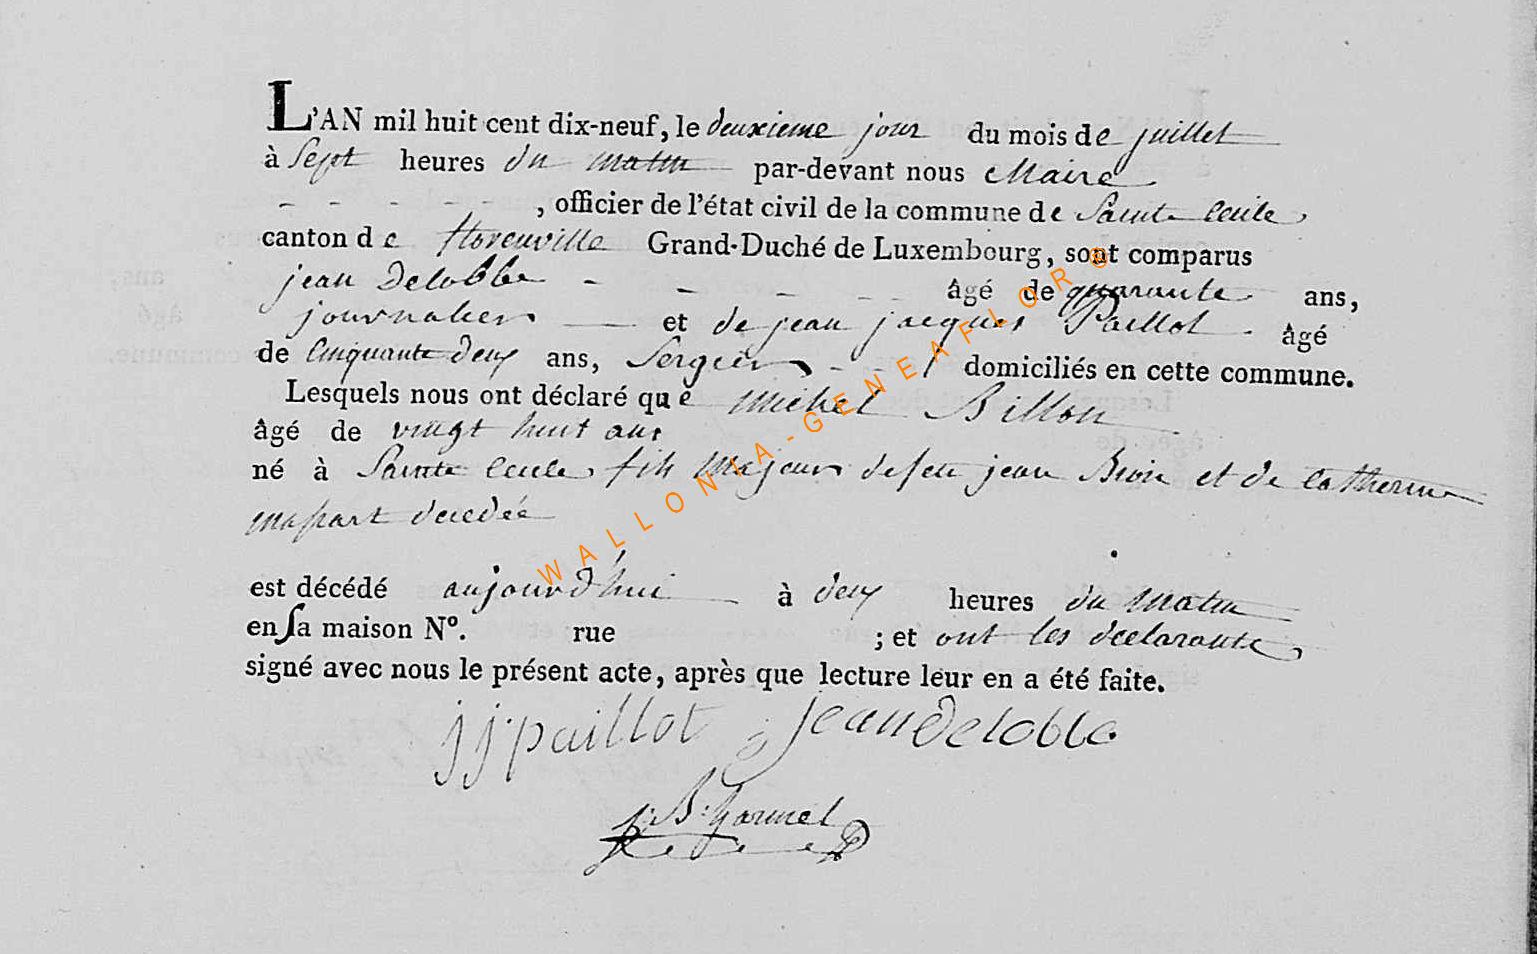 L'AN mil huit cent dix-neuf, le deuxieme jour du mois de juillet
à Sept heures du matin par-devant nous Maire
- - - - - , officier de l'état civil de la commune de Sainte Cecile
canton de florenville Grand-Duché de Luxembourg, sont comparus
jean Delobbe - - - - âgé de quarante ans,
journalier et de jean jacques Paillot âgé
de Cinquante deux ans, Sergier - - domiciliés en cette commune.
Lesquels nous ont déclaré que michel Billon
âgé de vingt huit ans
né à Sainte Cecile fils Majeur de feu jean et de Catherine
decedée
est décédé aujourd'hui à deux heures du Matin
en Sa maison N°. rue ; et ont les declarants
signé avec nous le présent acte, après que lecture leur en a été faite.
jj paillot jean Delobbe
WALLONIA-GENEAFLOR®